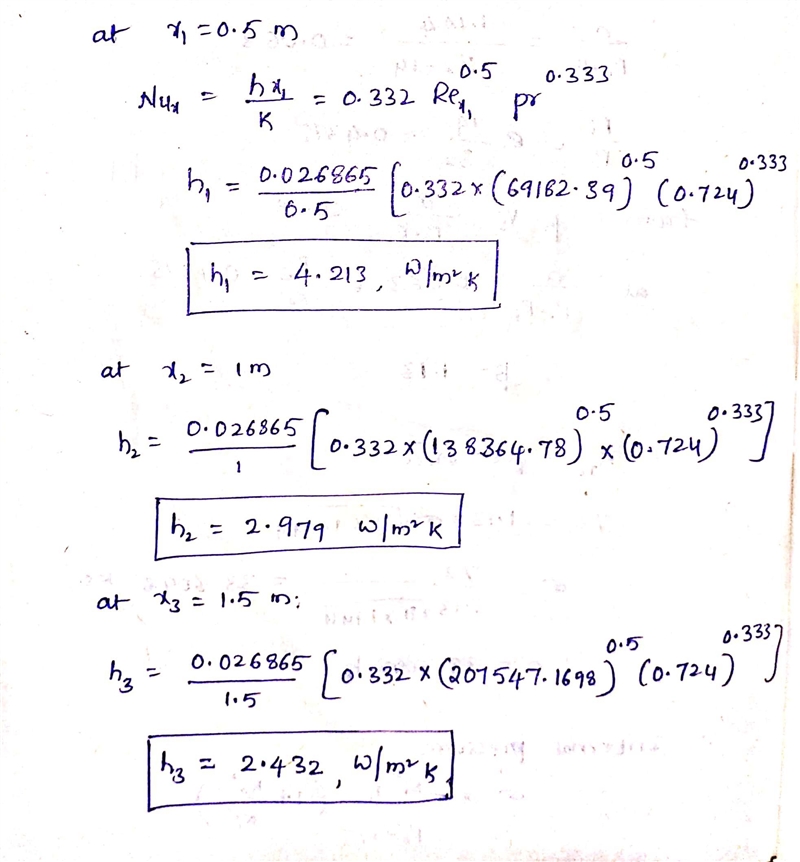 at x₁ = 0.5 m
Nuₓ = hx₁/K = 0.332 Reₓ₁^0.5 pr^0.333
h₁ = 0.026865/0.5 [0.332 x (69182.39)^0.5 (0.724)^0.333
h₁ = 4.213, W/m² K
at x₂ = 1 m
h₂ = 0.026865/1 [0.332 x (138364.78)^0.5 x (0.724)^0.333]
h₂ = 2.979 W/m² K
at x₃ = 1.5 m:
h₃ = 0.026865/1.5 [0.332 x (207547.1698)^0.5 (0.724)^0.333]
h₃ = 2.432, W/m² K